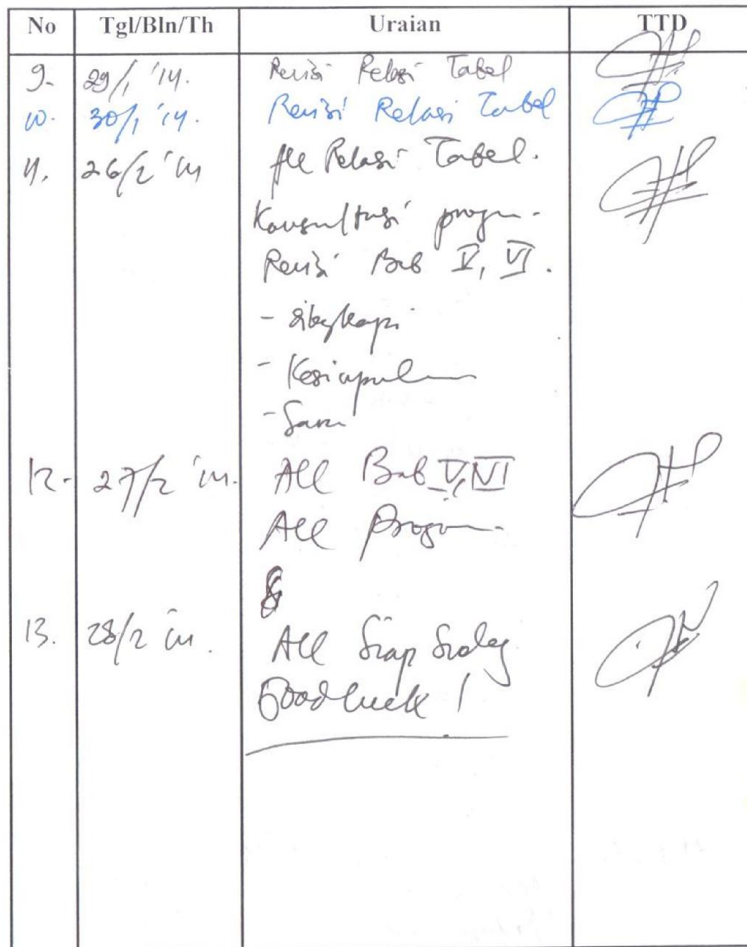 No Tgl/Bln/Th Uraian TTD
9. 29/1 '14. Revisi Relasi Tabel
10. 30/1 '14. Revisi Relasi Tabel
11. 26/2 '14 Acc Relasi Tabel.
Konsultasi progr
Revisi Bab V, VI.
-
- Kesimpulan
- Saran
12. 27/2 '14. Acc Bab V, VI
Acc Program
13. 28/2 '14. Acc Siap Sidang
Good luck !